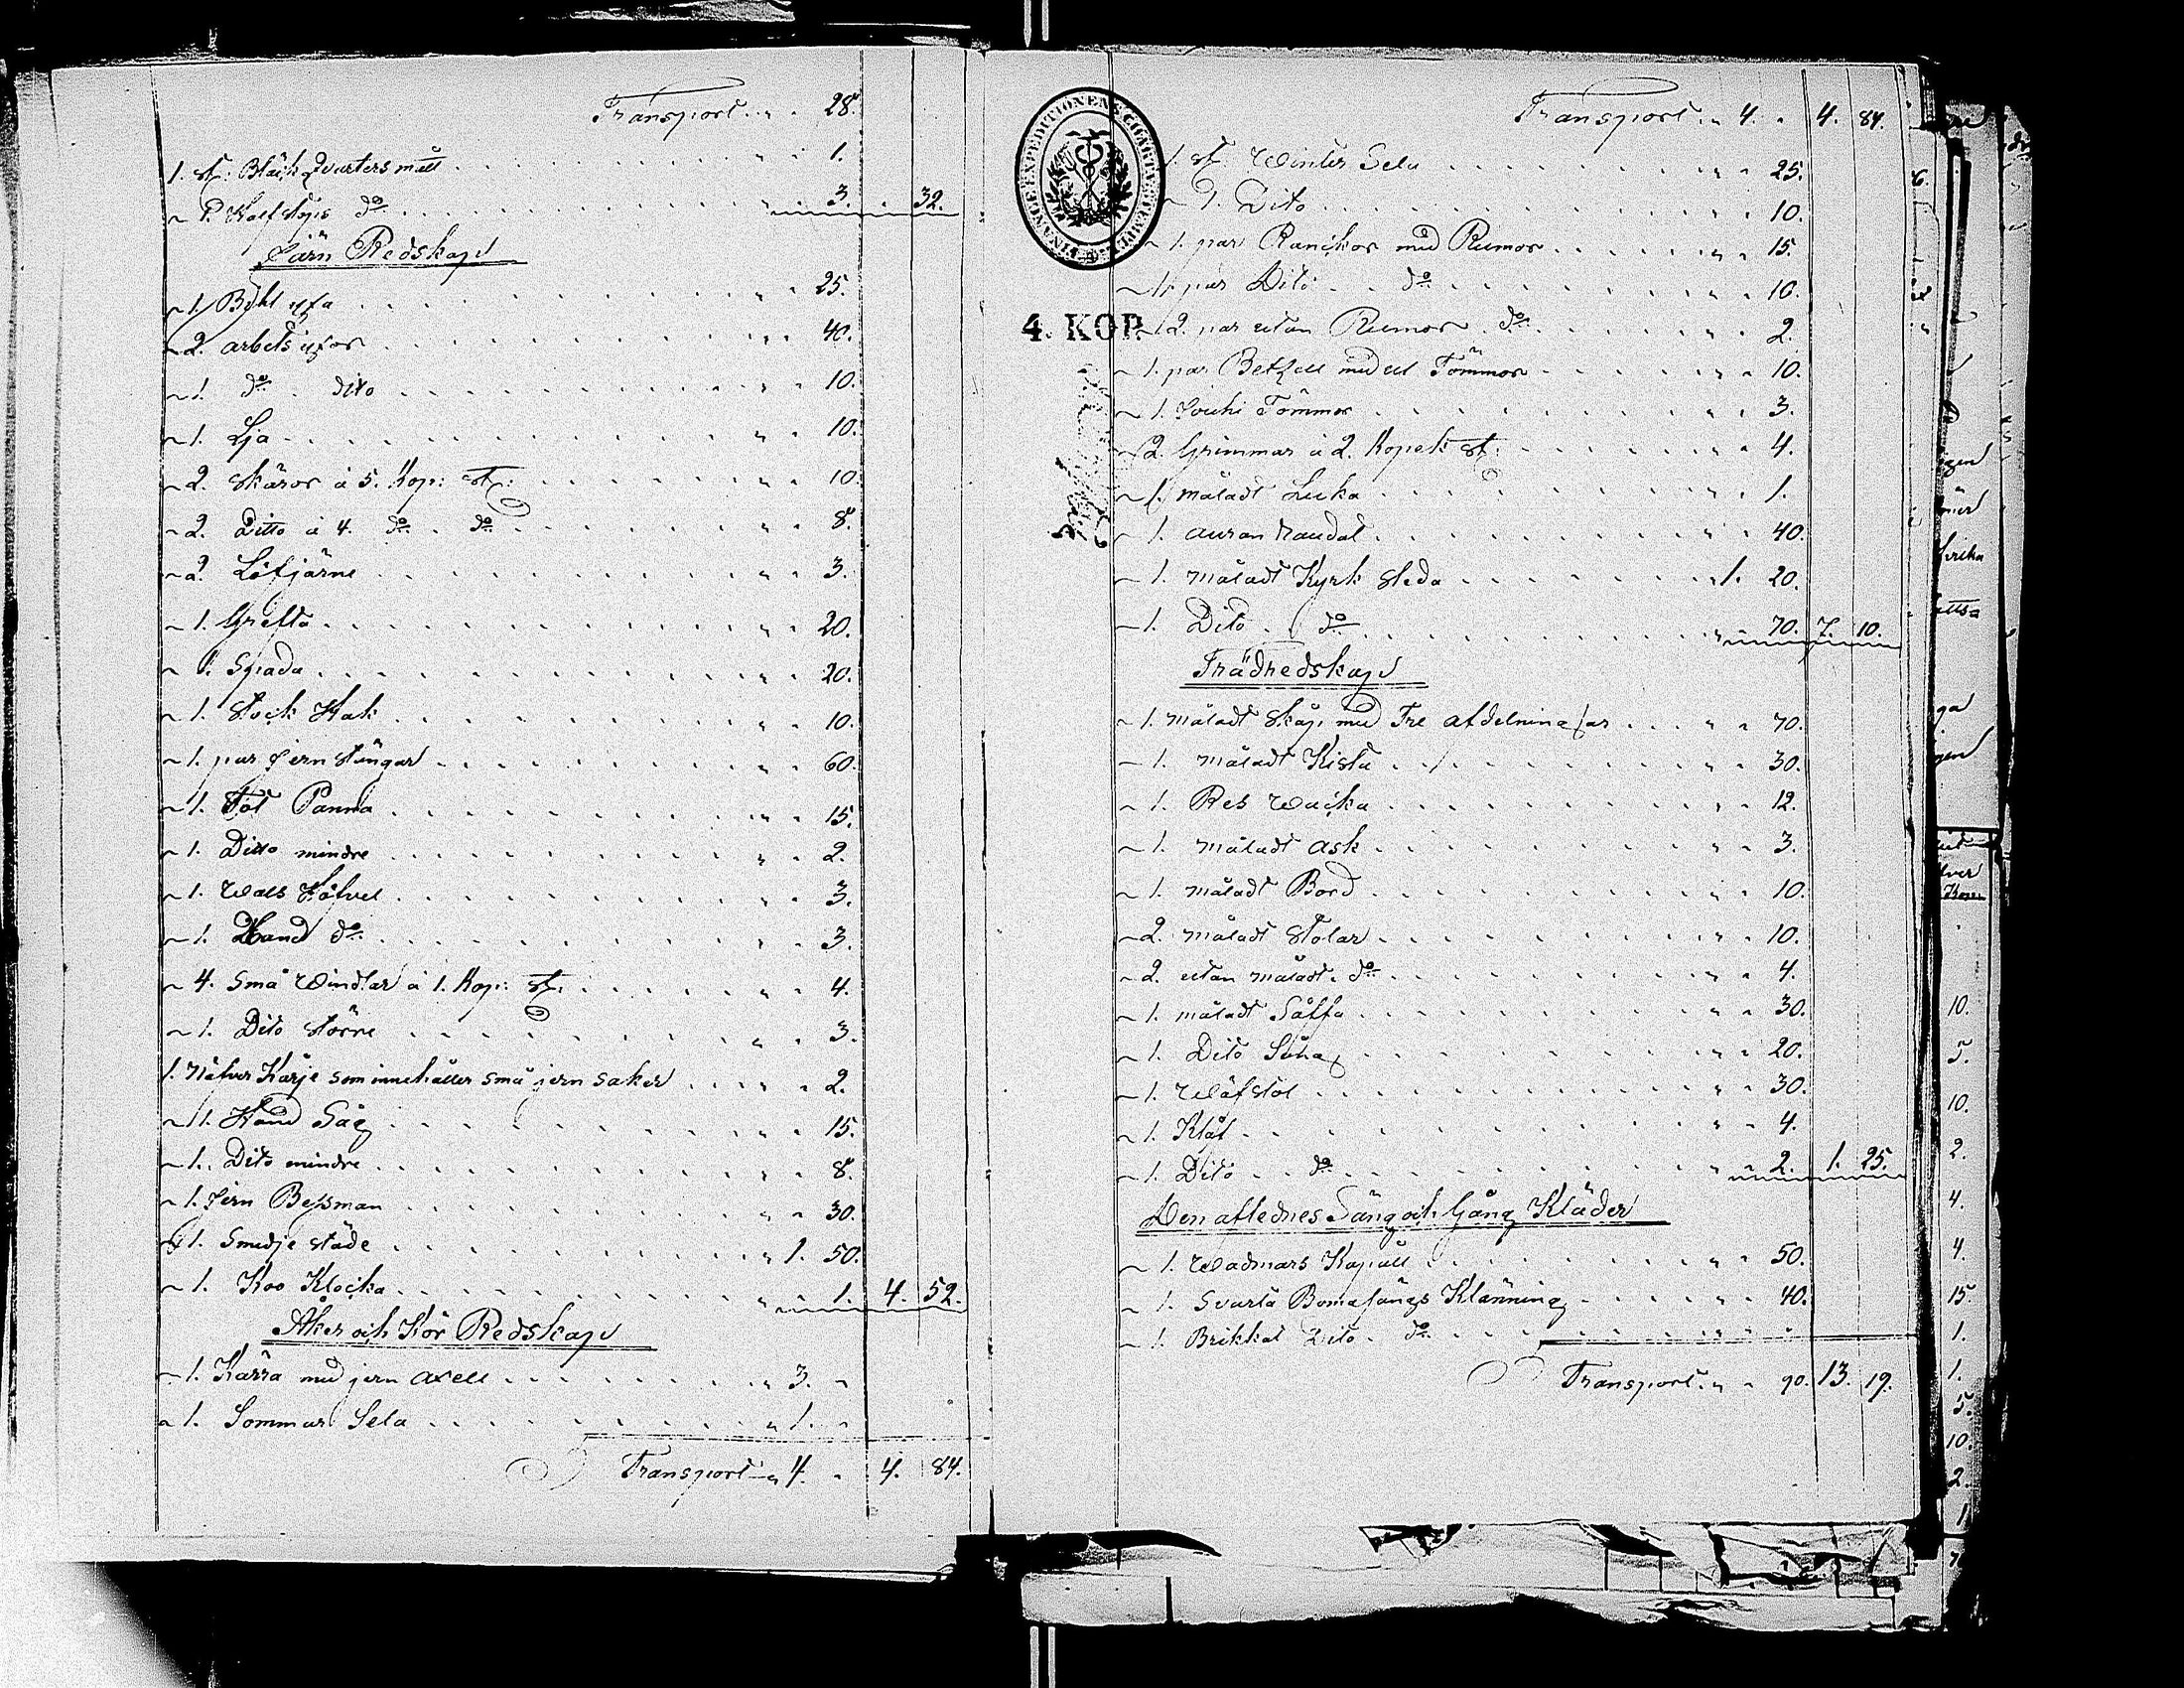 Transport " " 28.
1. st: Bläck qvarters mått " " 1.
" 1. Half stops do " " 3. " 32.
Järn Redskap
" 1. Böhl yxa " " 25.
" 2. arbets yxor " " 40.
" 1. do dito " " 10.
" 1. Lja " " 10.
" 2. Skäror á 5. Kop: st: " " 10.
" 2. Ditto á 4. do do " " 8.
" 2. Löfjärne " " 3.
" 1. Grefta " " 20.
" 1. Spada " " 20.
" 1. Stock Hak " " 10.
" 1. par Jern stängar " " 60.
" 1. Fot Panna " " 15.
" 1. Ditto mindre " " 2.
" 1. Wals Höfvel " " 3.
" 1. Hand do " " 3.
" 4. Små Windlar á 1. Kop: st: " " 4.
" 1. Dito större " " 3.
1. Näfver Korje som innehåller små jern saker " " 2.
" 1. Hand Såg " " 15.
" 1. Dito mindre " " 8.
" 1. Jern Bessman " " 30.
" 1. Smedje städe " 1. 50.
" 1. Koo Klocka " " 1. 4. 52.
Åker och Kör Redskap
" 1. Kärra med jern axell " 3. "
" 1. Sommar Sela " 1. "
Transport " 4. " 4. 84.
FINANCE EXPEDITIONENS CHARTÆ STEMPEL
4. KOP.
Transport " 4. " 4. 84.
1. st: Winter Sela " " 25.
" 1. Dito " " 10.
" 1. par Ranckor med Remor " " 15.
" 1. par Dito do " " 10.
" 2. par utan Remor do " " 2.
" 1. par Betzell med Tömmor " " 10.
" 1. Tömmor " " 3.
" 2. Grimmar á 2. Kopek st: " " 4.
" 1. måladt Luka " " 1.
" 1. " " 40.
" 1. måladt Kyrk Sleda " 1. 20.
" 1. Dito do " " 70. 7. 10.
Trädredskap
" 1. måladt Skåp med Tre afdelningar " " 70.
" 1. måladt Kista " " 30.
" 1. Res Wacka " " 12.
" 1. måladt ask " " 3.
" 1. måladt Bord " " 10.
" 2. måladt Stolar " " 10.
" 2. utan måladt do " " 4.
" 1. måladt Såffa " " 30.
" 1. Dito Säng " " 20.
" 1. Wäfstol " " 30.
" 1. Klåf " " 4.
" 1. Dito do " " 2. 1. 25.
Den aflednes Säng och Gång Kläder
" 1. Wadmars Kapått " " 50.
" 1. Svarta Bomasängs Klänning " " 40.
" 1. Brikkat Dito do " " "
Transport " " 90. 13. 19.